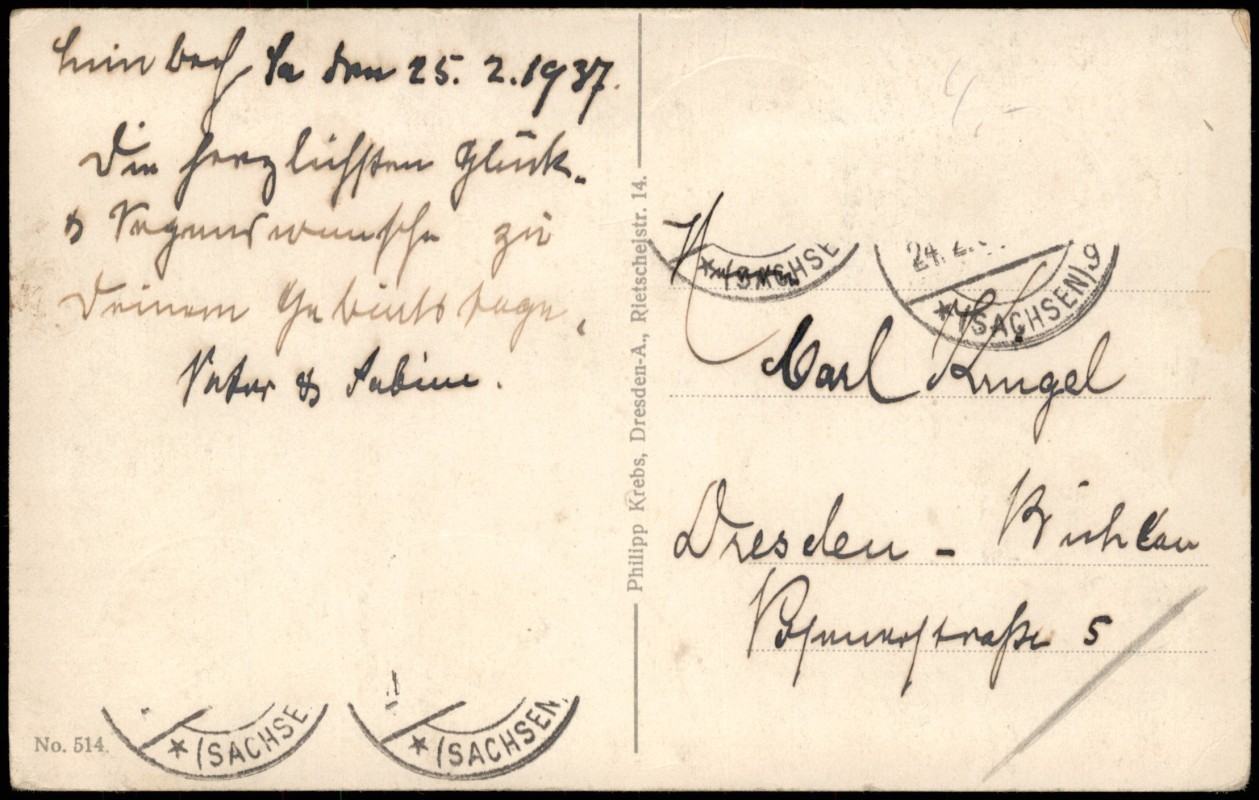 Limbach, Sa den 25. 2. 1937.
Die herzlichsten Glück-
& Segenswünsche zu
Deinem Geburtstage,
Vater & Sabine.
Philipp Krebs, Dresden-A., Rietschelstr. 14.
(SACHSE
24. 2.
(SACHSEN) 9
Carl Krugel
Dresden - Bühlau
Posenerstraße 5
No. 514.
(SACHSE
(SACHSEN